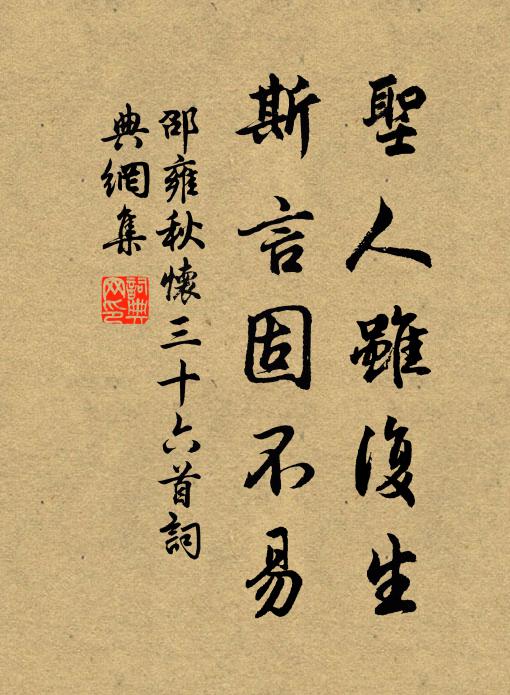 聖人雖復生
斯言固不易
邵雍秋懷三十六首詞
典網集
詞典
网印